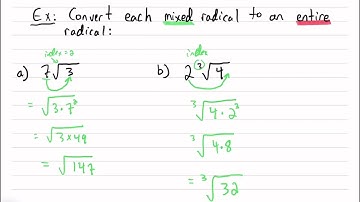 Ex: Convert each mixed radical to an entire
radical:
index=2
a) 7√3
= √3·7²
= √3×49
= √147
index
b) 2 ³√4
³√4·2³
³√4·8
= ³√32